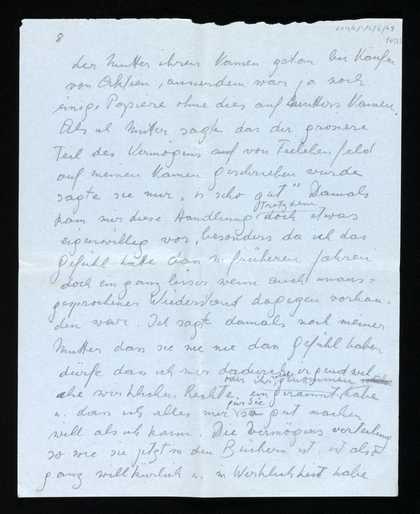 8
der Mutter ihren Namen getan beim Kaufen
von Aktien, ausserdem war ja noch
einige Papiere ohne dies auf Mutters Namen.
Als ich Mutter sagte das der grössere
Teil des Vermögens auf von
auf meinen Namen geschrieben wurde
sagte sie mir, is scho gut" Damals
trotzdem
kam mir diese Handlung doch etwas
eigenwillig vor, besonders da ich das
Gefühl hatte dass in früheren Jahren
doch ein ganz leiser wenn auch unaus-
gesprochener Wiederstand dagegen vorhan-
den war. Ich sagte damals noch meiner
Mutter dass sie nie nie das Gefühl haben
dürfe dass ich mir dadurch irgend wel-
oder ihr genommen
che wirklichen Rechte eingeräumt habe
für Sie
u. dass ich alles nur so gut machen
will als ich kann. Die Vermögens verteilung
so wie sie jetzt in den Büchern ist, ist also
ganz willkürlich u. in Wirklichkeit habe